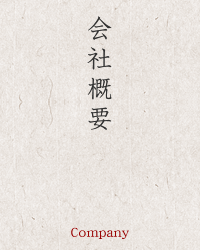 会社概要
Company